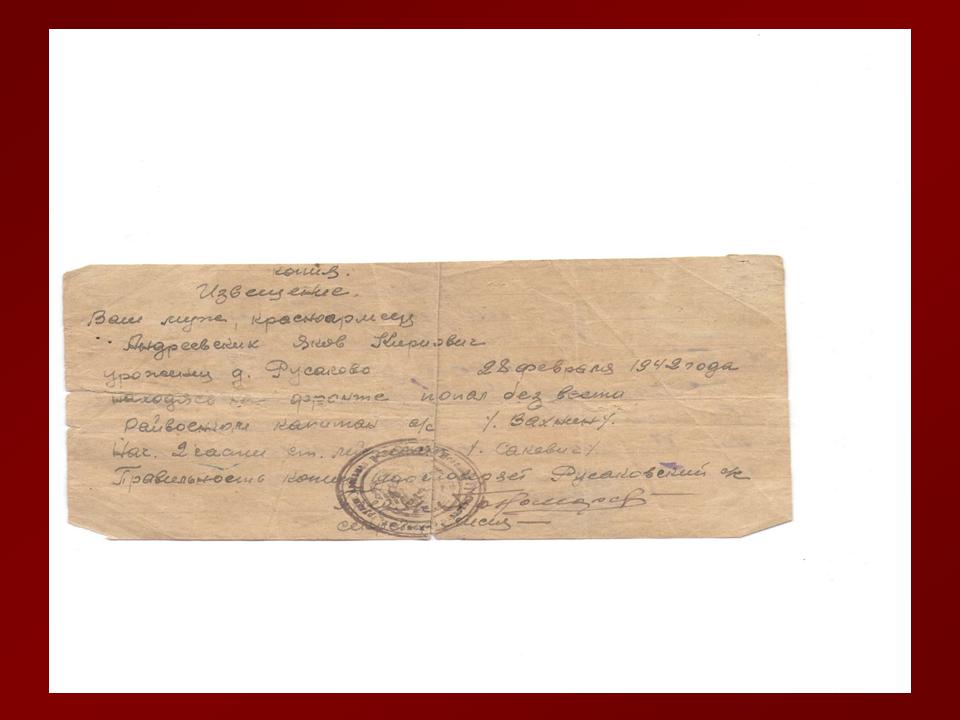 копия.
Извещение.
Ваш муж, красноармеец
Андреевских Яков Кирмович
урожениц д. Русаково 28 февраля 1942 года
находясь на фронте попал без вести
райвоенком капитан а/с /. Вахнин/.
Нач. 2 части ст. /. Сакевич/.
Правильность копии Русаковский с/с